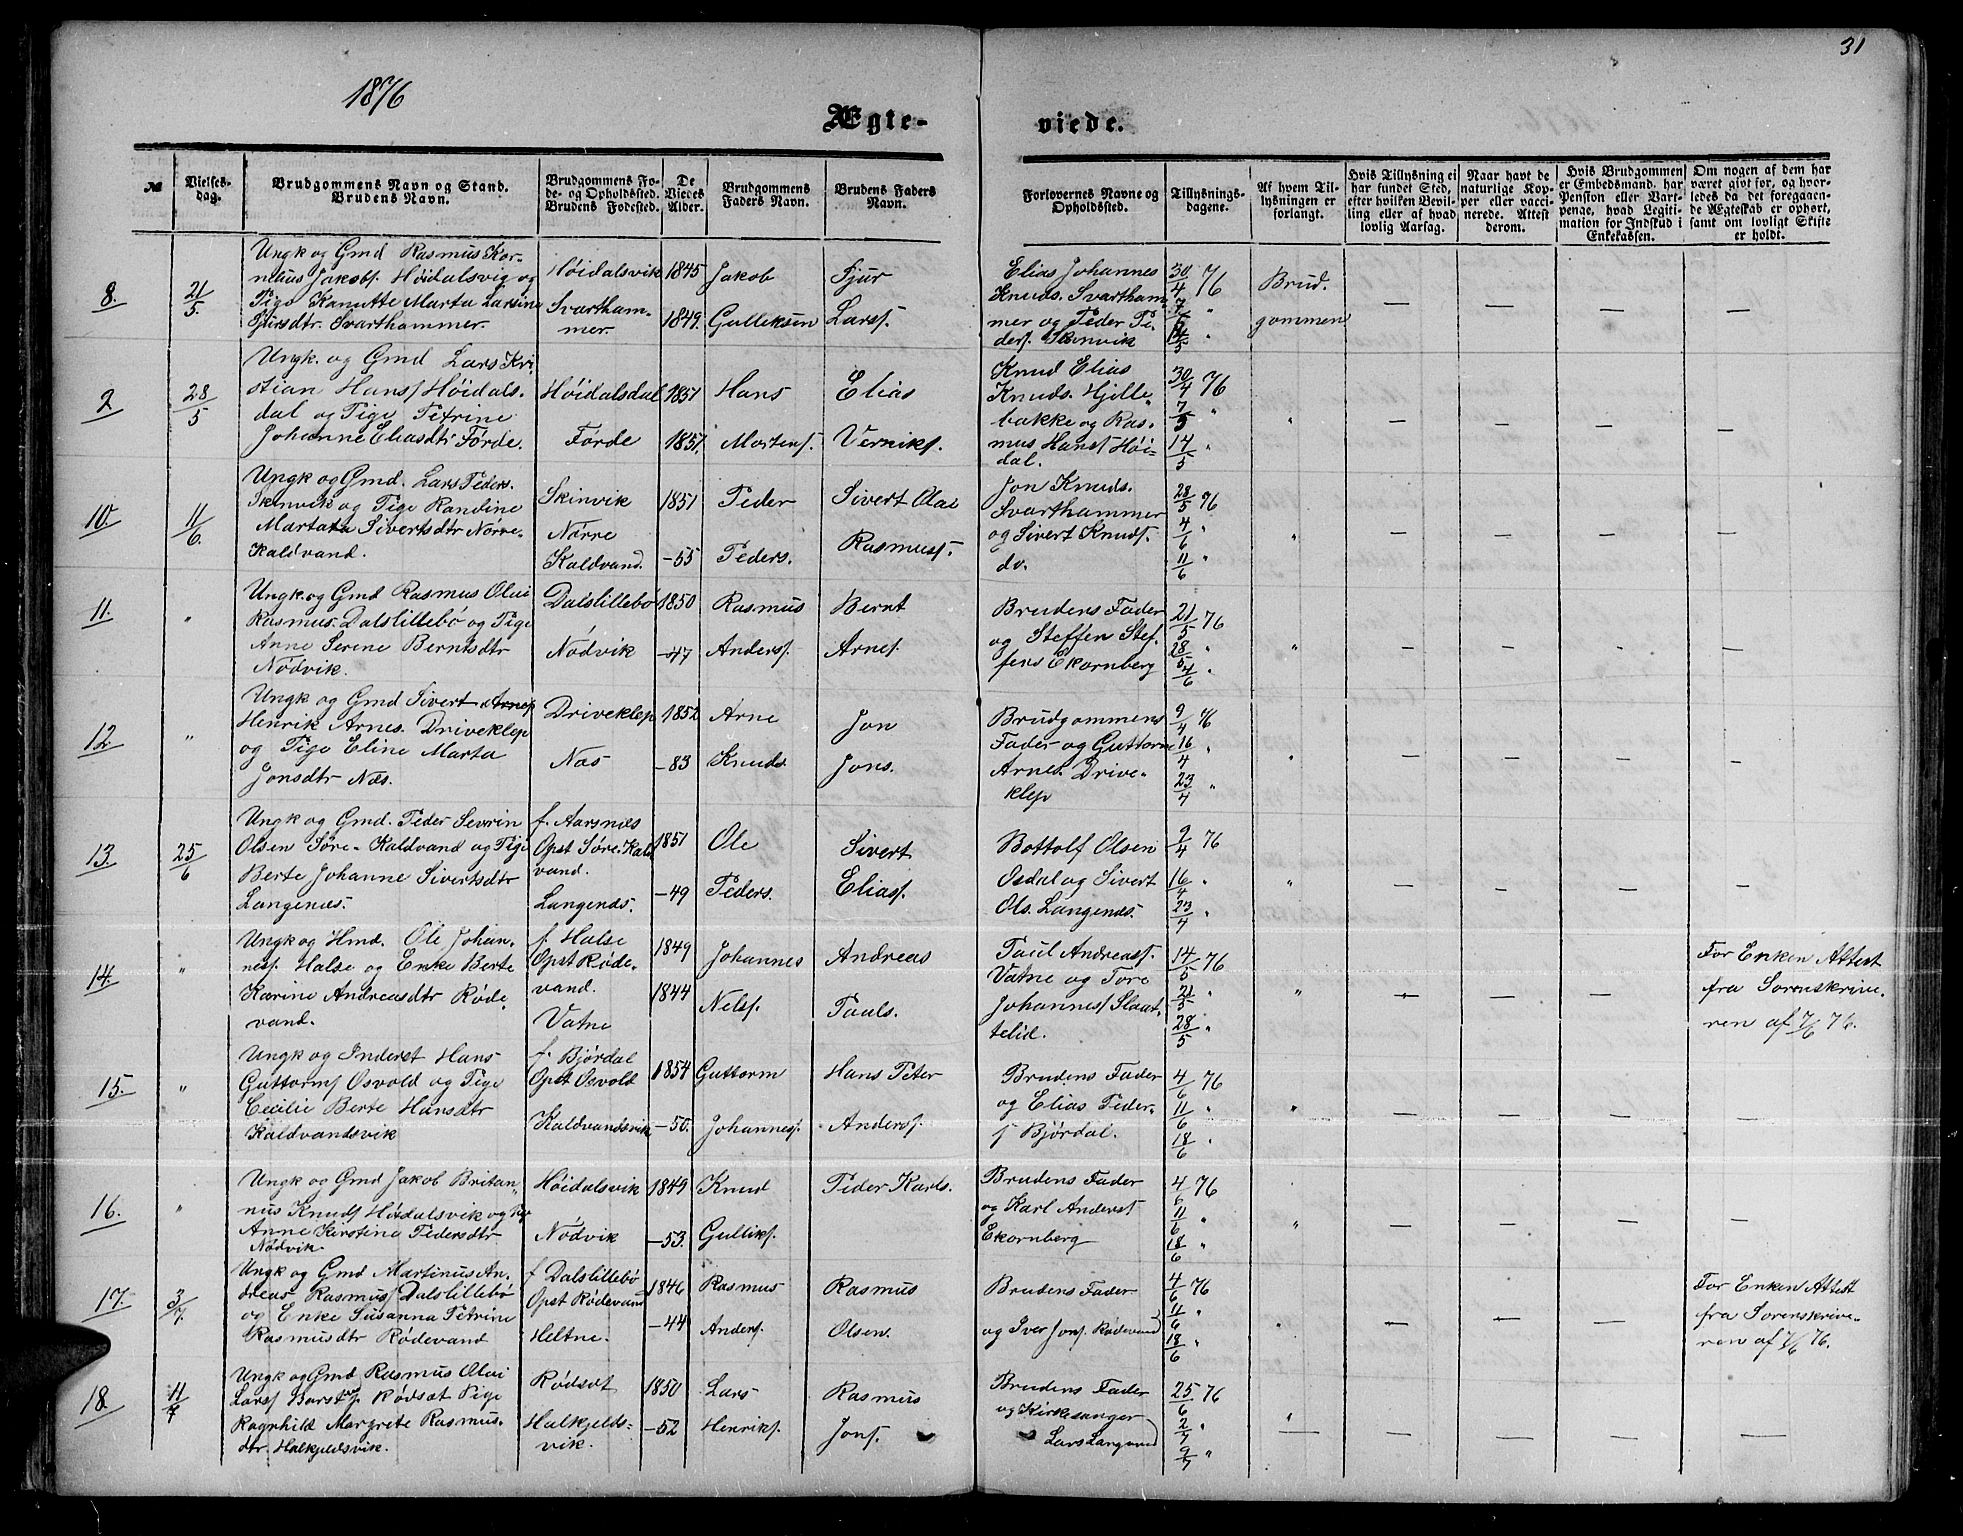 31
1876
Ægte-
viede.
№
Vielses-
dag.
Brudgommens Navn og Stand.
Brudens Navn.
Brudgommens Fø-
de- og Opholdssted.
Brudens Fødested.
De
Viedes
Alder.
Brudgommens
Faders Navn.
Brudens Faders
Navn.
Forlovernes Navne og
Opholdssted.
Tillysnings-
dagene.
Af hvem Til-
lysningen er
forlangt.
Hvis Tillysning ei
har fundet Sted,
efter hvilken Bevil-
ling eller af hvad
lovlig Aarsag.
Naar havt de
naturlige Kop-
per eller vacci-
nerede. Attest
derom.
Hvis Brudgommen
er Embedsmand, har
Pension eller Vart-
penge, hvad Legiti-
mation for Indskud i
Enkekassen.
Om nogen af dem har
været givt før, og hvor-
ledes da det foregaaen-
de Ægteskab er ophørt,
samt om lovligt Skifte
er holdt.
8.
21/5.
Ungk og Gmd Rasmus Kor-
nelius Jakobs. Höidalsvig og
Pige Kanutte Marta Larsine
Fjursdtr. Svarthammer.
Höidalsvik
Svartham-
mer.
1845
1849.
Jakob
Gulleksen
Fjur
Larss.
Elias Johannes
Knuds. Svartham
mer og Peder Pe
ders. Skinvik
30/4 76
7/5 "
14/5 "
Brud.
gommen
2
28/5
Ungk. og Gmd Lars Kri
stian Hanss Höidals.
dal og Pige Petrine
Johanne Eliasdtr Förde.
Höidalsdal
Förde
1851
1851.
Hans
Mortens.
Elias
Verniks.
Knud Elias
Knuds. Hjelle
bakke og Ras
mus Hanss Höi-
dal.
30/4 76
7/5 "
14/5 "
"
10.
11/6.
Ungk og Gmd. Lars Peders.
Skinvik og Pige Randine
Martata Sivertsdtr Nörre-
Kaldvand.
Skinvik
Nørre
Kaldvand
1851
-55
Peder
Peders.
Sivert Olai
Rasmuss.
Jon Knuds.
Svarthammer
og Sivert Knuds.
do.
28/5 76
4/6 "
11/6 "
"
11.
"
Ungk. og Gmd Rasmus Olai
Rasmus. Dalslillebö og Pige
Anne Serene Berntsdtr
Nödvik.
Dalslillebö
Nödvik
1850
-47
Rasmus
Anderss.
Bernt
Arnes.
Brudens Fader
og Steffen Stef
fens Ekornberg
21/5 76
28/5 "
4/6 "
"
12
"
Ungk og Gmd Sivert Arnes
Henrik Arnes. Driveklep
og Pige Eline Marta
Jonsdtr Næs.
Driveklep
Næs
1852
-83
Arne
Knuds
Jon
Jons.
Brudgommens
Fader og Guttorm
Arnes. Drive-
klep
9/4 76
16/4 "
23/4 "
"
13.
25/6
Ungk og Gmd. Peder Sevrin
Olsen Söre-Kaldvand og Pige
Berte Johanne Sivertsdtr
Langenæs.
f. Aarsnæs
Opst Söre. Kald
vand.
Langenæs.
1851
-49
Ole
Peders.
Sivert
Eliass.
Bottolf Olsen
Osdal og Sivert
Ols. Langenæs.
9/4 76
16/4 "
23/4 "
"
14.
"
Ungk og Hmd. Ole Johan-
ness. Halse og Enke Berte
Karine Andreasdtr Röde
vand.
f. Halse
Opst Röde.
vand.
Vatne
1849
1844
Johannes
Nelss.
Andreas
Pauls.
Paul Andreass.
Vatne og Tore
Johanness Slaat-
telid.
14/5 76
21/5 "
28/5 "
"
For Enken Attest
fra Sorenskrive-
ren af 7/6 76.
15.
"
Ungk og Inderst Hans
Guttorms Osvold og Pige
Cecilie Berte Hansdtr
Kaldvandsvik
f. Björdal
Opst Osvold
Kaldvandsvik
1854
-50.
Guttorm
Johanness.
Hans Peter
Anderss.
Brudens Fader
og Elias Peder-
s Björdal.
4/6 76
11/6 "
18/6 "
"
16.
"
Ungk og Gmd Jakob Britan
nus Knuds Höidalsvik og Pige
Anne Kirstine Pedersdtr
Nödvik
Höidalsvik
Nödvik
1849
-53.
Knud
Gulliks.
Peder Karls.
Brudens Fader
og Karl Anderss
Ekornberg
4/6 76
11/6 "
18/6 "
"
17.
3/7.
Ungk og Gmd Martinus An-
dreas Rasmuss Dalslillebö
og Enke Susanna Petrine
Rasmusdtr Rödevand
f Dalslillebö
Opst Rödevand
Heltne.
1846
-44
Rasmus
Anderss.
Rasmus
Olsen.
Brudens Fader
og Iver Jons. Rödevand
4/6 76
11/6 "
18/6 "
"
For Enken Attest
fra Sorenskrive-
ren af 7/6 76.
18.
11/7
Ungk og Gmd Rasmus Olai
Larss Rødsæt Pige
Ragnhild Margrete Rasmus-
dtr. Halkjeldsvik.
Rødsæt
Halkjelds-
vik.
1850
-52
Lars
Henriks.
Rasmus
Jons.
Brudens Fader
og Kirkesanger
Lars
25/6 76
2/7 "
9/7 "
"